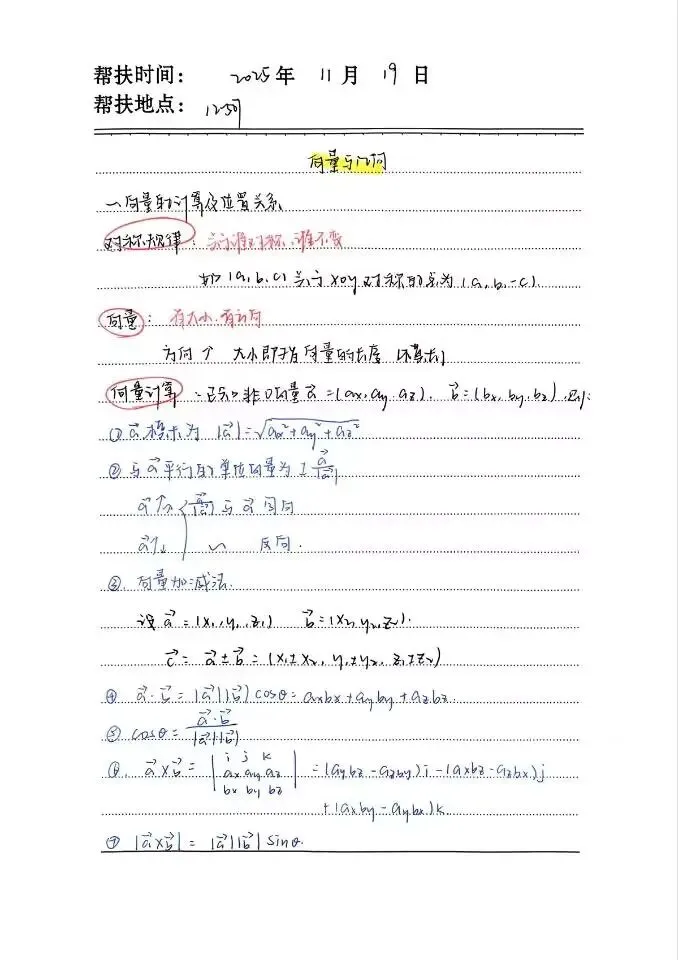 帮扶时间： 2025年 11月 19日
帮扶地点： 125阶
向量与几何
一 向量的计算及位置关系
对称规律：关于谁对称，谁不变
如 (a, b, c) 关于 xoy 对称的点为 (a, b, -c)
向量：有大小、有方向
大小即为向量的长度
向量计算：已知非0向量 a⃗ = (ax, ay, az), b⃗ = (bx, by, bz), 则:
① a⃗ 模长为 |a⃗| = √(ax² + ay² + az²)
② 与 a⃗ 平行的单位向量为 ± a⃗/|a⃗|
a⃗/|a⃗| 与 a⃗ 同向
反向.
③. 向量加减法.
设 a⃗ = (x₁, y₁, z₁) b⃗ = (x₂, y₂, z₂).
c⃗ = a⃗ ± b⃗ = (x₁ ± x₂, y₁ ± y₂, z₁ ± z₂)
④ a⃗ · b⃗ = |a⃗||b⃗| cosθ = axbx + ayby + azbz.
⑤ cosθ = a⃗ · b⃗ / |a⃗||b⃗|
⑥. a⃗ × b⃗ = | i j k
ax ay az
bx by bz | = (aybz - azby)i - (axbz - azbx)j
+ (axby - aybx)k.
⑦ |a⃗ × b⃗| = |a⃗||b⃗| sinθ.